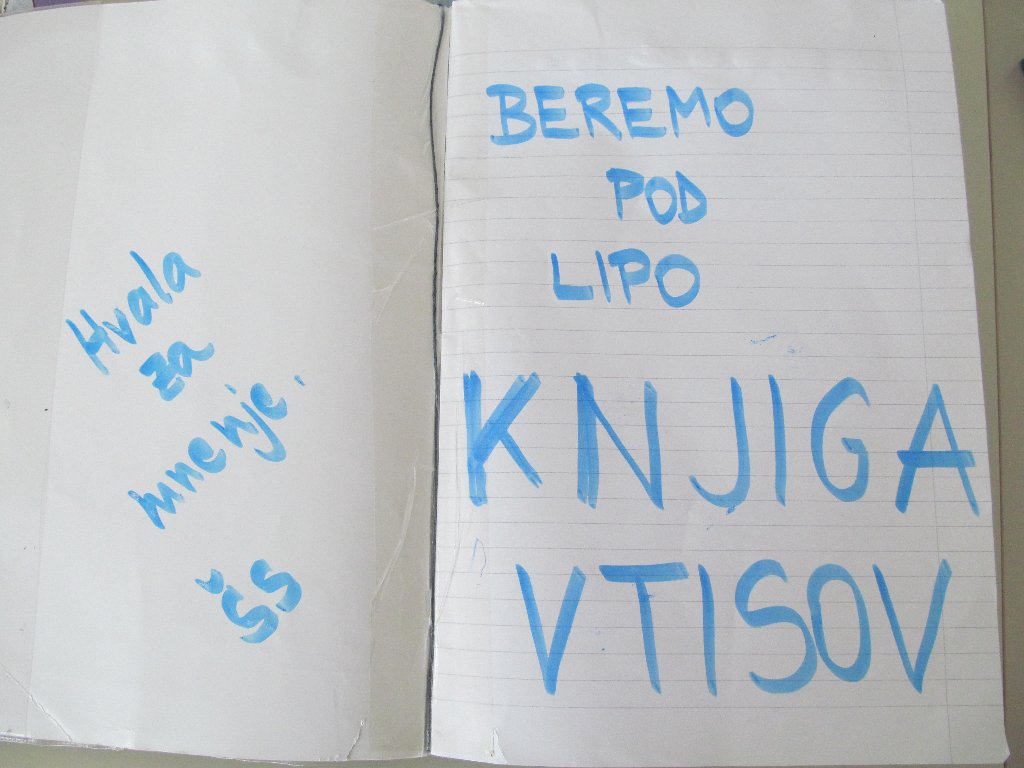 Hvala
za
mnenje.
ŠS
BEREMO
POD
LIPO
KNJIGA
VTISOV